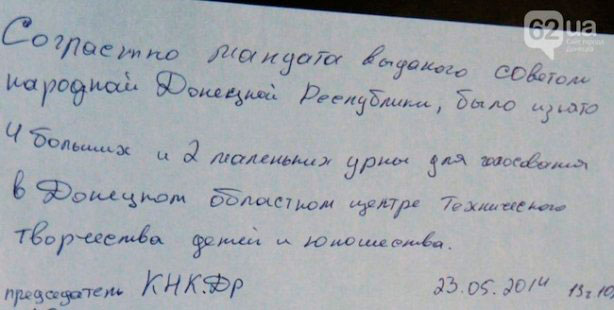 62.ua
Сайт города
Донецка
Согластно мандата выданого советом
народнай Донецкай Республики, было изъято
4 больших и 2 маленьких урны для голосования
в Донецком областном центре Технического
творчества детей и юношества.
председатель КНК.ДР 23.05.2014 13 ч 10